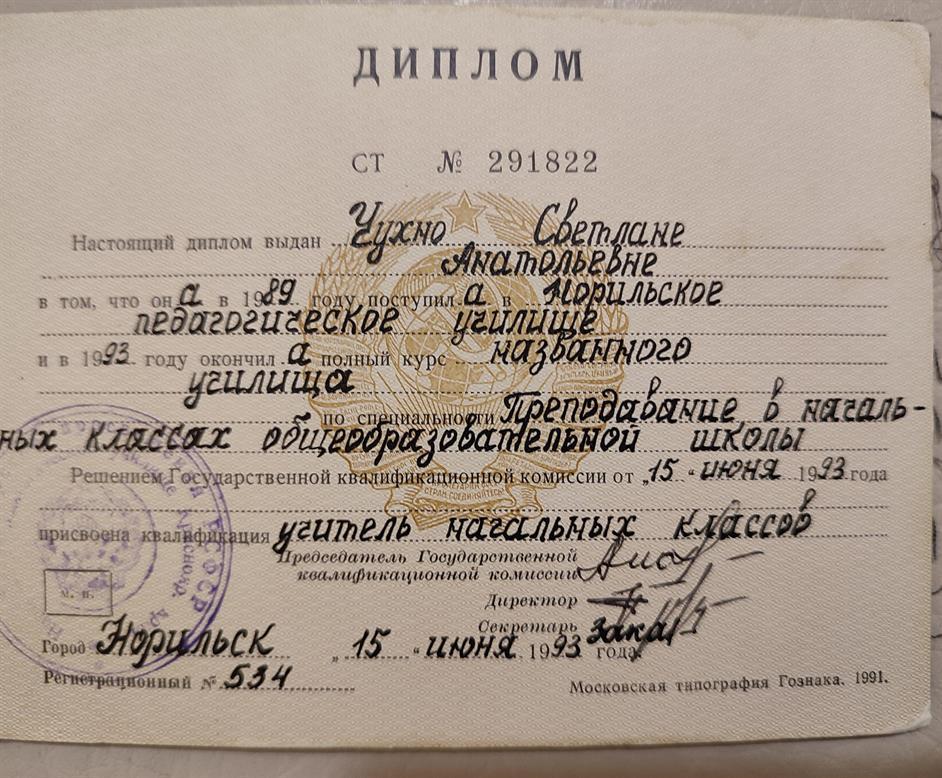 ДИПЛОМ
СТ № 291822
Настоящий диплом выдан Чухно Светлане
Анатольевне
в том, что он а в 1989 году поступил а в Норильское
педагогическое училище
и в 1993 году окончил а полный курс названного
училища
по специальности Преподавание в началь-
ных классах общеобразовательной школы
Решением Государственной квалификационной комиссии от „15“ июня 1993 года
присвоена квалификация учитель начальных классов
Председатель Государственной
квалификационной комиссии
Директор
Секретарь
М. П.
Город Норильск „15“ июня 1993 года
Регистрационный № 534
Московская типография Гознака. 1991.
РСФСР